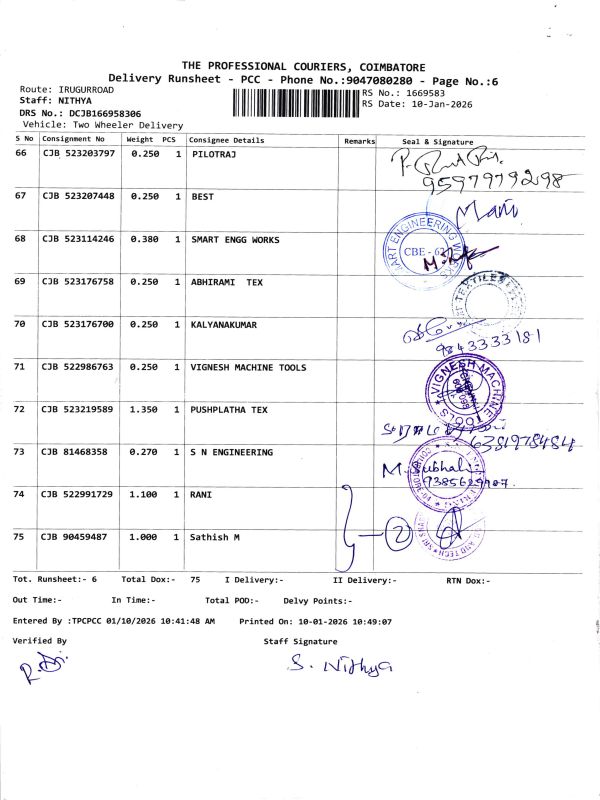 THE PROFESSIONAL COURIERS, COIMBATORE
Delivery Runsheet - PCC - Phone No.:9047080280 - Page No.:6
Route: IRUGURROAD
RS No.: 1669583
Staff: NITHYA
RS Date: 10-Jan-2026
DRS No.: DCJB166958306
Vehicle: Two Wheeler Delivery
S No Consignment No Weight PCS Consignee Details Remarks Seal & Signature
66 CJB 523203797 0.250 1 PILOTRAJ
9597979298
67 CJB 523207448 0.250 1 BEST
Mani
68 CJB 523114246 0.380 1 SMART ENGG WORKS
SMART ENGINEERING WORKS
CBE - 62
69 CJB 523176758 0.250 1 ABHIRAMI TEX
70 CJB 523176700 0.250 1 KALYANAKUMAR
9843333181
71 CJB 522986763 0.250 1 VIGNESH MACHINE TOOLS
VIGNESH MACHINE TOOLS
72 CJB 523219589 1.350 1 PUSHPLATHA TEX
6381978484
73 CJB 81468358 0.270 1 S N ENGINEERING
M. Subhali
9385629907.
74 CJB 522991729 1.100 1 RANI
75 CJB 90459487 1.000 1 Sathish M
2
Tot. Runsheet:- 6 Total Dox:- 75 I Delivery:- II Delivery:- RTN Dox:-
Out Time:- In Time:- Total POD:- Delvy Points:-
Entered By :TPCPCC 01/10/2026 10:41:48 AM Printed On: 10-01-2026 10:49:07
Verified By Staff Signature
S. Nithya